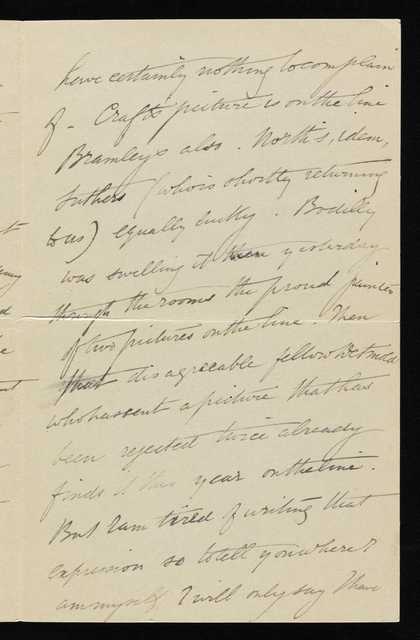 have certainly nothing to complain
of - Craft's picture is on the line
Bramley's also. North's, idem,
Suthers (who is shortly returning
to us) equally lucky. Bodilly
was swelling it then yesterday
through the rooms the proud painter
of two pictures on the line. Then
that disagreeable fellow
who has sent a picture that has
been rejected twice already
finds it this year on the line.
But I am tired of writing that
expression so to tell you where I
am myself, I will only say I have